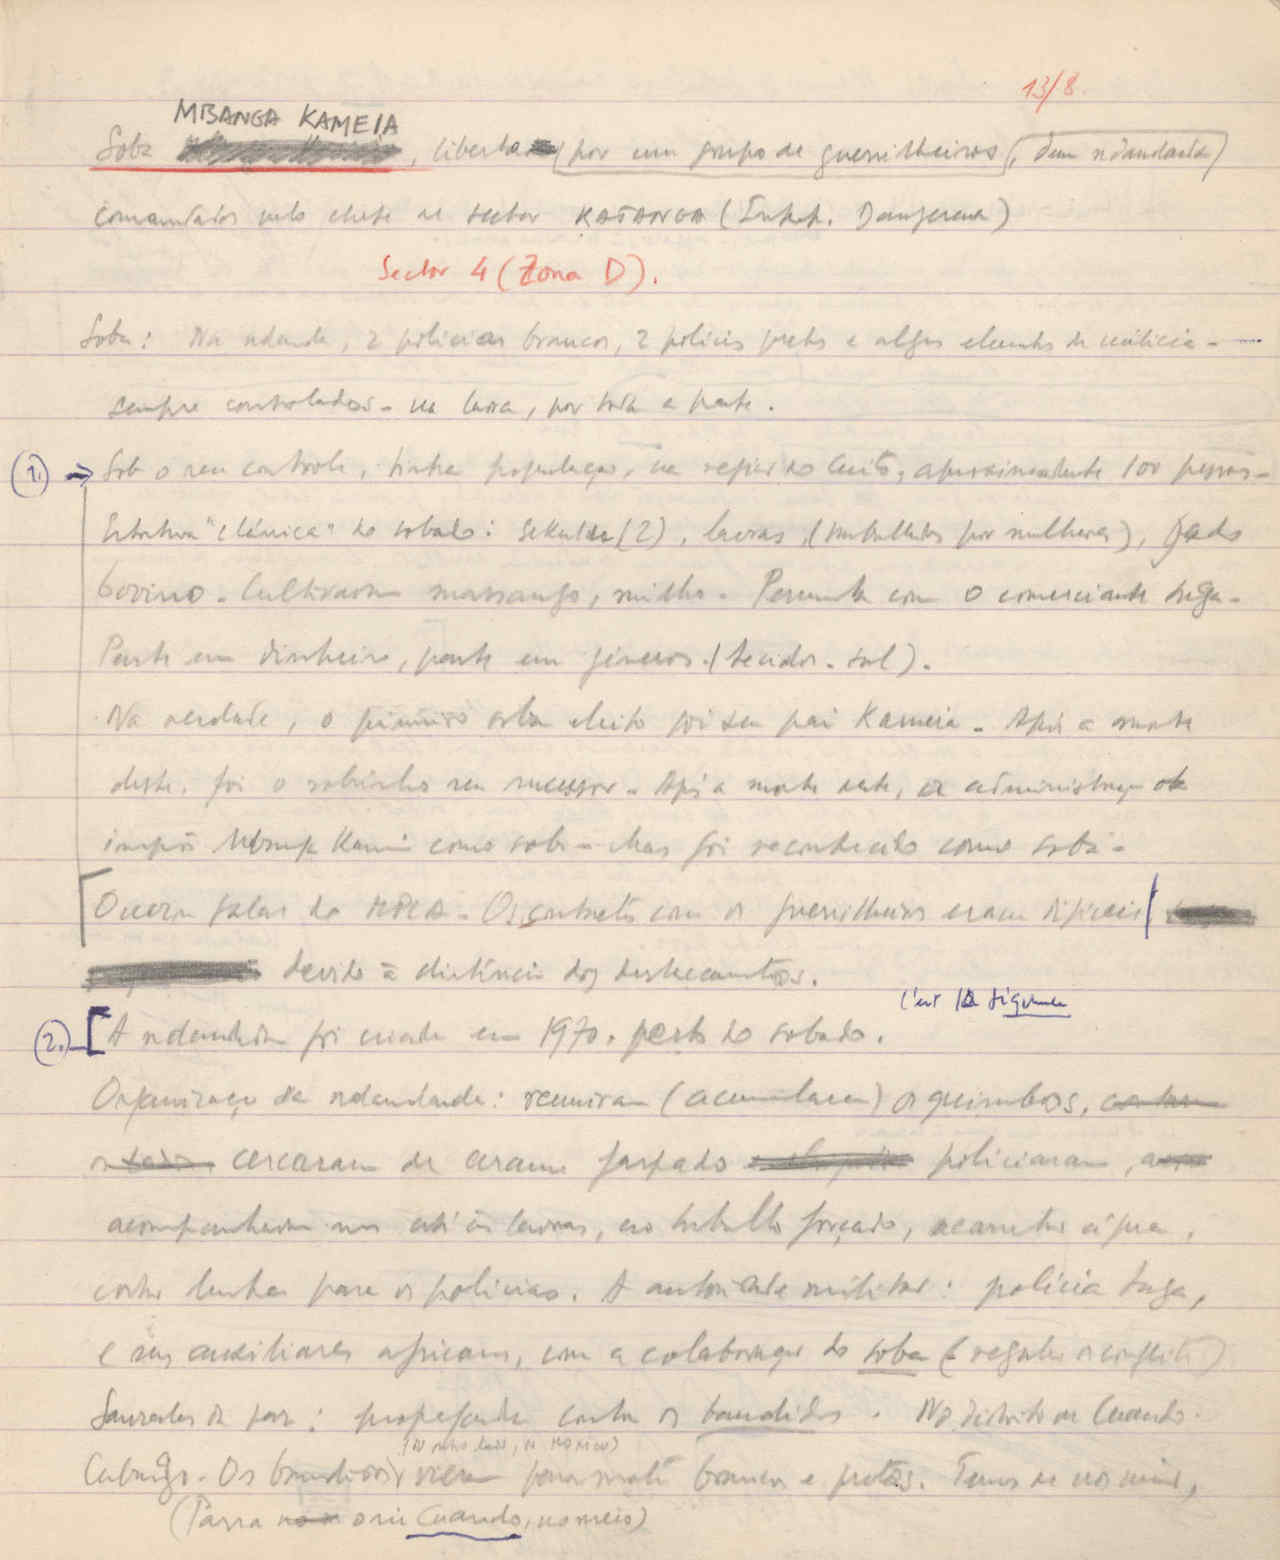 13/8.
MBANGA KAMEIA
Soba , liberta por um grupo de guerrilheiros, dum ndandanda
comandados pelo chefe de sector KATANGA ( Dangereux)
Sector 4 (Zona D).
Soba: Na ndanda, 2 policias brancos, 2 policias pretos e alguns elementos de milicia -
sempre controlados - na lavra, por toda a parte.
1. → Sob o seu controle, tinha população, na região do Cuito, aproximadamente 100 pessoas -
Estrutura "clánica" do sobado: Sekulu (2), lavras, (trabalhadas por mulheres), gado
bovino - Cultivavam massango, milho - Permuta com o comerciante tuga -
Parte em dinheiro, parte em géneros. (tecidos - sal).
Na verdade, o primeiro soba eleito foi seu pai Kameia - Após a morte
deste, foi o sobrinho seu sucessor - Após a morte deste, a administração
impôs Mbanga Kameia como soba - Mas foi reconhecido como soba -
Ouviram falar do MPLA - Os contactos com os guerrilheiros eram dificeis
devido à distância dos destacamentos.
C'est la
2. A ndandanda foi criada em 1970, perto do sobado.
Organização da ndandanda: reuniram (acumularam) os quimbos,
cercaram de arame farpado policiaram,
acompanhavam nos até às lavras, ao trabalho forçado, acarretar água,
cortar lenha para os policias. A autoridade militar: policia tuga,
e seus auxiliares africanos, com a colaboração do soba (regular os conflitos)
propaganda contra os bandidos. No distrito de Cuando-
Cubango - Os bandidos vieram para matar brancos e pretos. Temos de nos unir,
(Para o rio Cuando, no meio)